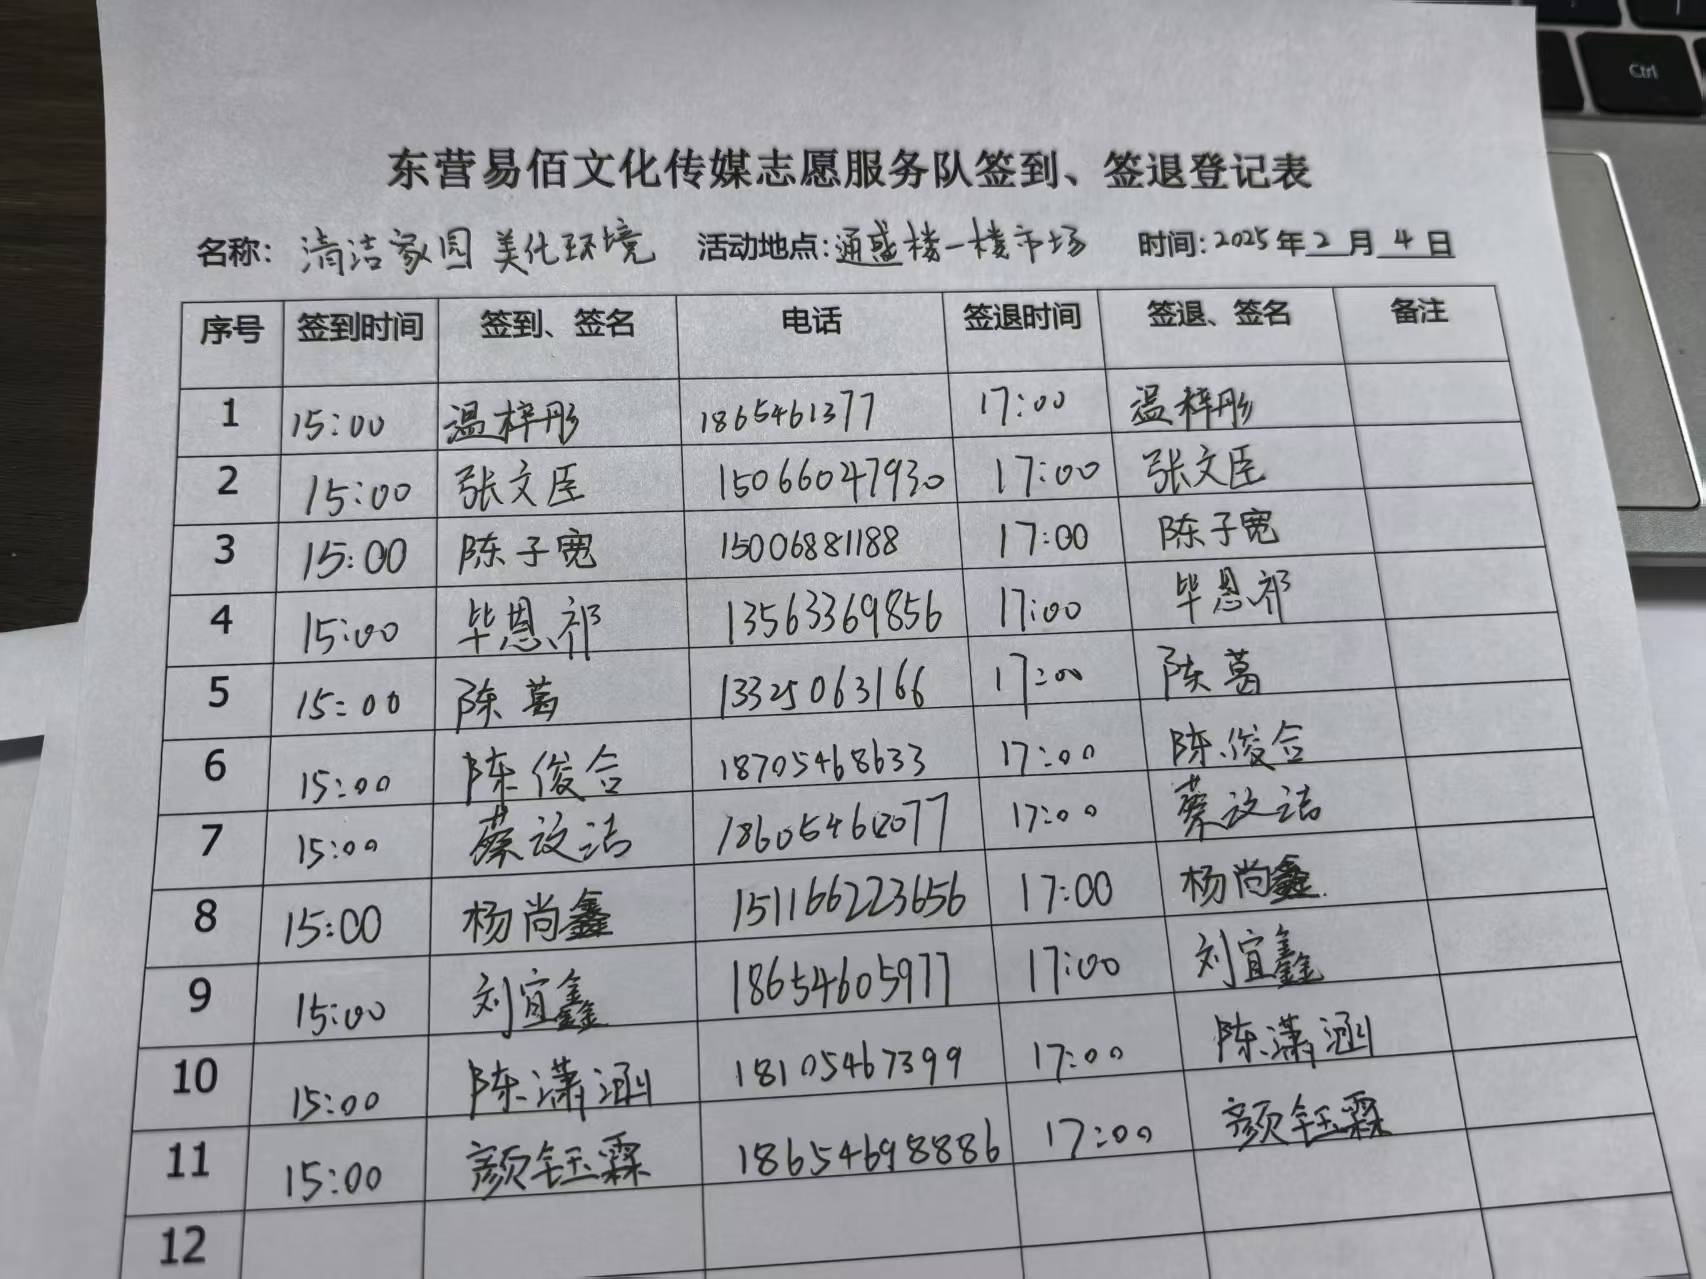 Ctrl
东营易佰文化传媒志愿服务队签到、签退登记表
名称: 清洁家园 美化环境 活动地点:通盛楼一楼市场 时间:2025年2月4日
序号 签到时间 签到、签名 电话 签退时间 签退、签名 备注
1 15:00 温梓彤 1865461377 17:00 温梓彤
2 15:00 张文臣 15066047930 17:00 张文臣
3 15:00 陈子宽 15006881188 17:00 陈子宽
4 15:00 毕恩祁 13563369856 17:00 毕恩祁
5 15:00 陈葛 13325063166 17:00 陈葛
6 15:00 陈俊合 18705468633 17:00 陈俊合
7 15:00 蔡议洁 18605460077 17:00 蔡议洁
8 15:00 杨尚鑫 151166223656 17:00 杨尚鑫
9 15:00 刘宜鑫 18654605977 17:00 刘宜鑫
10 15:00 陈潇涵 18105467399 17:00 陈潇涵
11 15:00 颜钰霖 18654698886 17:00 颜钰霖
12